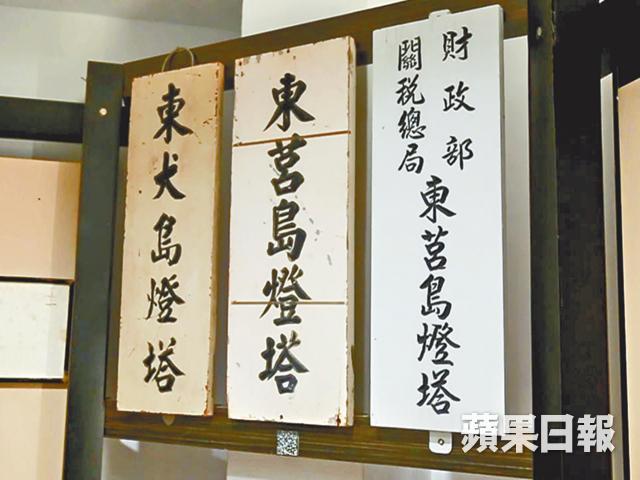 東犬島燈塔
東莒島燈塔
財政部
關稅總局
東莒島燈塔
蘋果日報